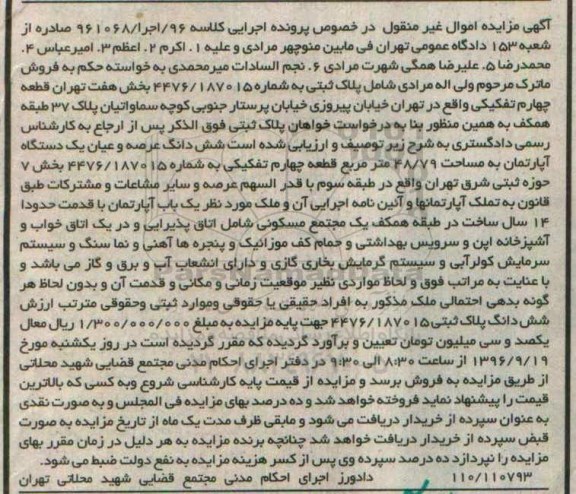 آگهی مزایده اموال غیر منقول در خصوص پرونده اجرایی کلاسه ۹۶/اجرا/۹۶۱۰۶۸ صادره از
شعبه ۱۵۳ دادگاه عمومی تهران فی مابین منوچهر مرادی و علیه ۱. اکرم ۲. اعظم ۳. امیرعباس ۴.
محمدرضا ۵. علیرضا همگی شهرت مرادی ۶. نجم السادات میرمحمدی به خواسته حکم به فروش
ماترک مرحوم ولی اله مرادی شامل پلاک ثبتی به شماره ۴۴۷۶/۱۸۷۰۱۵ بخش هفت تهران قطعه
چهارم تفکیکی واقع در تهران خیابان پیروزی خیابان پرستار جنوبی کوچه سماواتیان پلاک ۳۷ طبقه
همکف به همین منظور بنا به درخواست خواهان پلاک ثبتی فوق الذکر پس از ارجاع به کارشناس
رسمی دادگستری به شرح زیر توصیف و ارزیابی شده است شش دانگ عرصه و عیان یک دستگاه
آپارتمان به مساحت ۴۸/۷۹ متر مربع قطعه چهارم تفکیکی به شماره ۴۴۷۶/۱۸۷۰۱۵ بخش ۷
حوزه ثبتی شرق تهران واقع در طبقه سوم با قدر السهم عرصه و سایر مشاعات و مشترکات طبق
قانون به تملک آپارتمانها و آئین نامه اجرایی آن و ملک مورد نظر یک باب آپارتمان با قدمت حدودا
۱۴ سال ساخت در طبقه همکف یک مجتمع مسکونی شامل اتاق پذیرایی و در یک اتاق خواب و
آشپزخانه اپن و سرویس بهداشتی و حمام کف موزائیک و پنجره ها آهنی و نما سنگ و سیستم
سرمایش کولرآبی و سیستم گرمایش بخاری گازی و دارای انشعاب آب و برق و گاز می باشد و
با عنایت به مراتب فوق و لحاظ مواردی نظیر موقعیت زمانی و مکانی و قدمت آن و بدون لحاظ هر
گونه بدهی احتمالی ملک مذکور به افراد حقیقی یا حقوقی وموارد ثبتی وحقوقی مترتب ارزش
شش دانگ پلاک ثبتی ۴۴۷۶/۱۸۷۰۱۵ جهت پایه مزایده به مبلغ ۱/۳۰۰/۰۰۰/۰۰۰ ریال معال
یکصد و سی میلیون تومان تعیین و برآورد گردیده که مقرر گردیده است در روز یکشنبه مورخ
۱۳۹۶/۹/۱۹ از ساعت ۸:۳۰ الی ۹:۳۰ در دفتر اجرای احکام مدنی مجتمع قضایی شهید محلاتی
از طریق مزایده به فروش برسد و مزایده از قیمت پایه کارشناسی شروع وبه کسی که بالاترین
قیمت را پیشنهاد نماید فروخته خواهد شد و ده درصد بهای مزایده فی المجلس و به صورت نقدی
به عنوان سپرده از خریدار دریافت می شود و مابقی ظرف مدت یک ماه از تاریخ مزایده به صورت
قبض سپرده از خریدار دریافت خواهد شد چنانچه برنده مزایده به هر دلیل در زمان مقرر بهای
مزایده را نپردازد ده درصد سپرده وی پس از کسر هزینه مزایده به نفع دولت ضبط می شود.
۱۱۰/۱۱۰۷۹۳ دادورز اجرای احکام مدنی مجتمع قضایی شهید محلاتی تهران